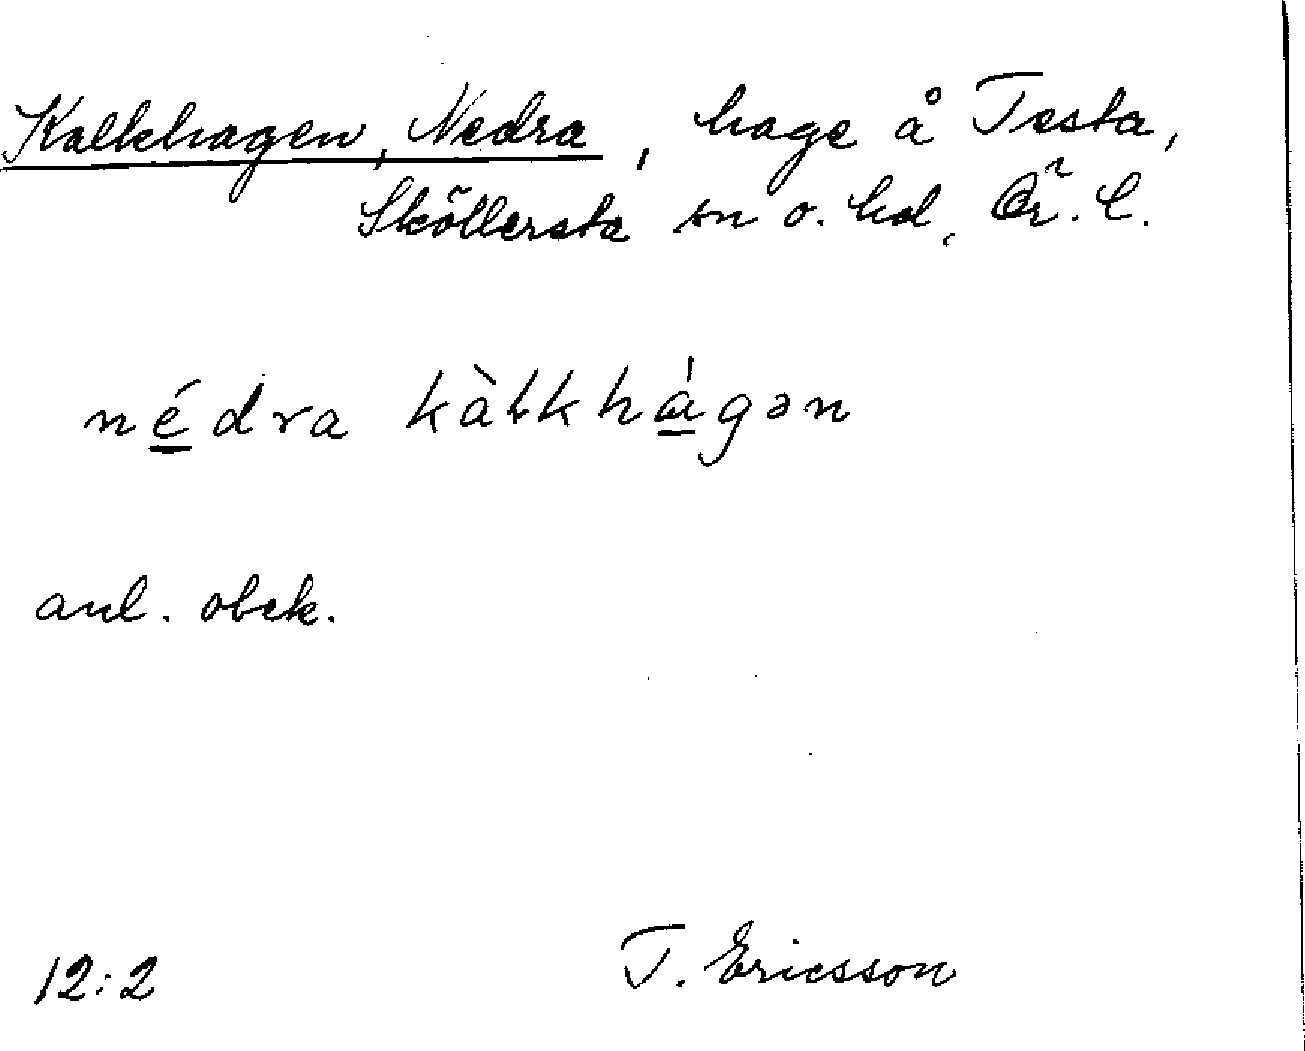 Kalkhagen, Nedra, hage å Testa,
Sköllersta sn o. hd, Ör. l.
nédra kàłkhágən
anl. obek.
12:2 T. Ericsson